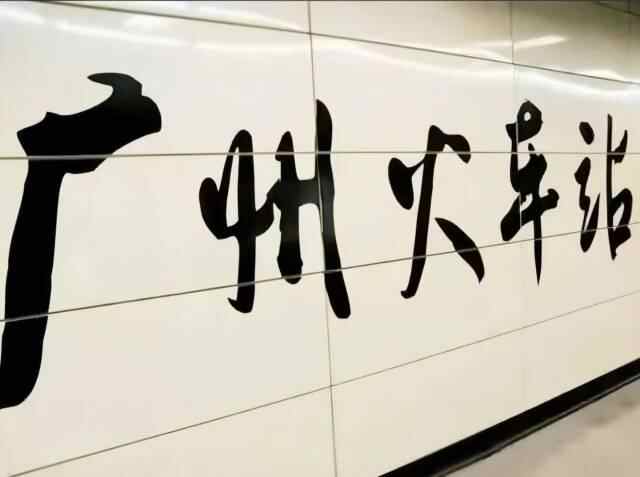 广州火车站